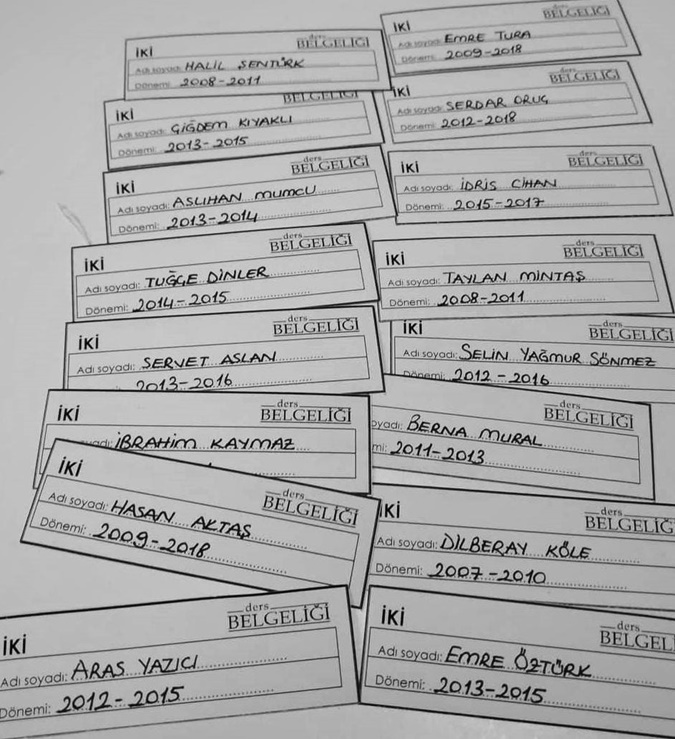 İKİ
ders
BELGELİĞİ
Adı soyadı: HALİL ŞENTÜRK
Dönemi: 2008-2011
İKİ
BELGELİĞİ
Adı soyadı: EMRE TURA
Dönemi: 2009-2018
İKİ
BELGELİĞİ
Adı soyadı: ÇİĞDEM KIYAKLI
Dönemi: 2013-2015
İKİ
ders
BELGELİĞİ
Adı soyadı: SERDAR ORUÇ
Dönemi: 2012-2018
İKİ
ders
BELGELİĞİ
Adı soyadı: ASLIHAN MUMCU
Dönemi: 2013-2014
İKİ
ders
BELGELİĞİ
Adı soyadı: İDRİS CİHAN
Dönemi: 2015-2017
İKİ
ders
BELGELİĞİ
Adı soyadı: TUĞÇE DİNLER
Dönemi: 2014-2015
İKİ
ders
BELGELİĞİ
Adı soyadı: TAYLAN MİNTAŞ
Dönemi: 2008-2011
İKİ
ders
BELGELİĞİ
Adı soyadı: SERVET ASLAN
2013-2016
İKİ
ders
BELGELİĞİ
Adı soyadı: SELİN YAĞMUR SÖNMEZ
Dönemi: 2012-2016
İKİ
ders
BELGELİĞİ
İBRAHİM KAYMAZ
ders
BELGELİĞİ
BERNA MURAL
2011-2013
İKİ
ders
BELGELİĞİ
Adı soyadı: HASAN AKTAŞ
Dönemi: 2009-2018
İKİ
ders
BELGELİĞİ
Adı soyadı: DİLBERAY KÖLE
Dönemi: 2007-2010
İKİ
ders
BELGELİĞİ
Adı soyadı: ARAS YAZICI
Dönemi: 2012-2015
İKİ
ders
BELGELİ
Adı soyadı: EMRE ÖZTÜRK
Dönemi: 2013-2015